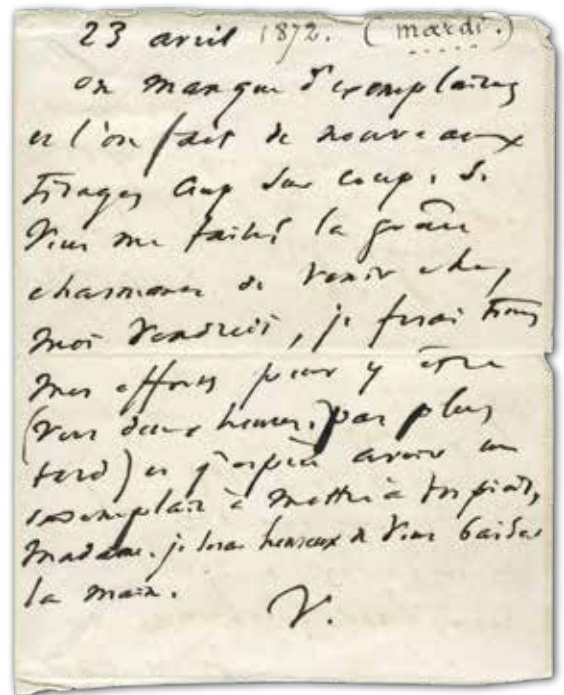 23 avril 1872. (mardi.)
on manque d'exemplaires
et l'on fait de nouveaux
tirages coup sur coup. Si
Vous me faites la grâce
charmante de venir chez
moi Vendredi, je ferai tous
mes efforts pour y être
(vers deux heures, pas plus
tard) et j'espère avoir un
exemplaire à mettre à vos pieds,
madame. je serai heureux de Vous baiser
la main.
V.